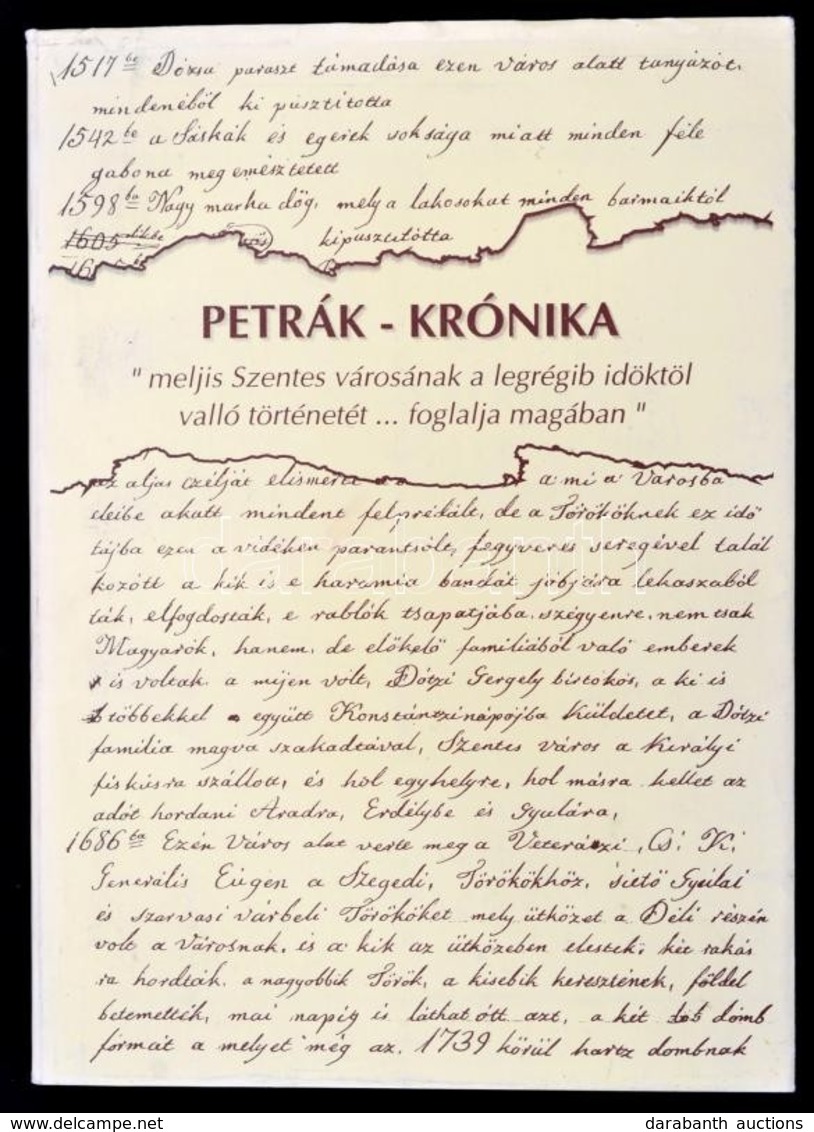 1517be Dózsa paraszt támadása ezen város alatt tanyázót,
mindenéböl ki pusztitotta
1542be a Sáskák és egerek soksága miatt minden féle
gabona meg emésztetett
1598ba Nagy marha dög, mely a lakosokat minden barmaiktól
1605 kipusztitótta
PETRÁK - KRÓNIKA
" meljis Szentes városának a legrégib idöktöl
valló történetét ... foglalja magában "
az aljas czélját elismerte a mi a Városba
cleibe akatt mindent felprédált, de a Törököknek ez idö
tájba ezen a vidéken parantsólt, fegyveres seregével talál
kozótt a kik is e haramia bandát jóbjára lekaszaból
ták, elfogdosták, e rablók tsapatjába szégyenre, nem tsak
Magyarók, hanem, de elökelö familiából való emberek
is voltak, a mijen vólt, Dótzi Gergely birtókós, a ki is
többekkel együtt Konstántzinápojba Küldetet, a Dótzi
familia magva szakadtával, Szentes város a Királyi
fiskusra szállott, és hol egyhelyre, hol másra kellet az
adót hordani Aradra, Erdélybe és Gyulára,
1686ba Ezen Város alat verte meg a Veterázi, Cs. K.
Generális Eúgen a Szegedi, Törökökhöz, sietö Gyulai
és szarvasi várbeli Törököket mely ütközet a Déli részén
volt a Városnak, is a kik az ütközeben elestek, két rakás
ra hordták, a nagyobbik Török, a kisebik keresztének, földel
betemették, mai napig is láthat ótt azt, a két domb
formát a melyet még az, 1739 körül hartz dombnak
darabanth
www.delcampe.net
darabanth auctions